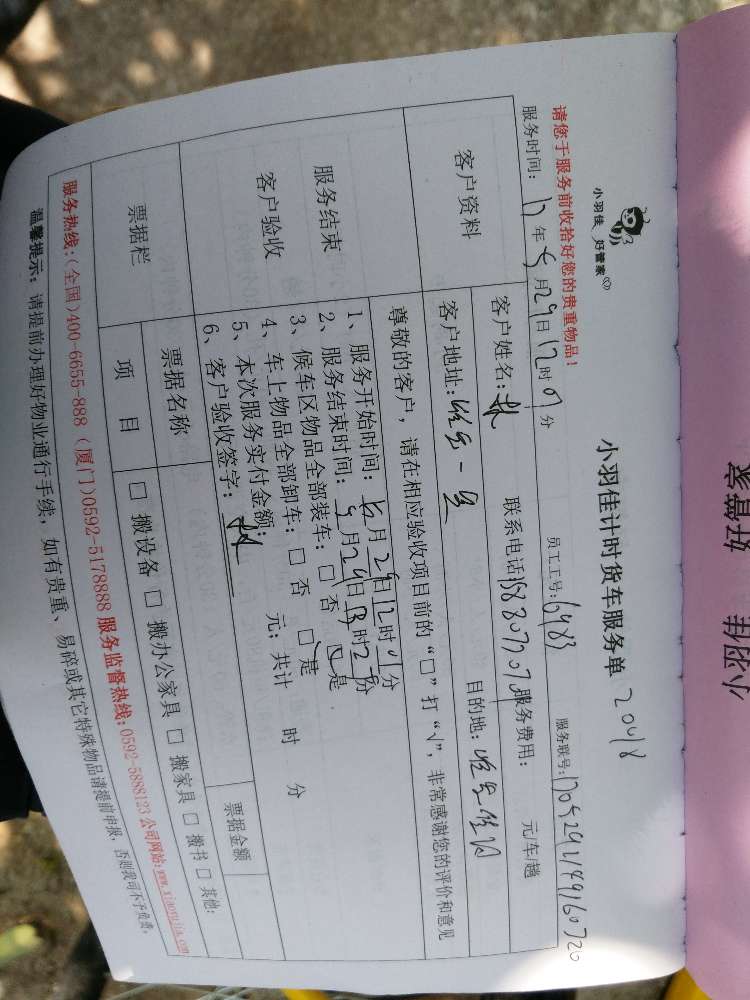 小羽佳 好管家
小羽佳 好管家
小羽佳计时货车服务单 2048
请您于服务前收拾好您的贵重物品！
服务时间: 17年5月29日12时01分 员工工号: 6483 服务联号:
客户资料 客户姓名: 林 联系电话: 服务费用: 元/车/趟
客户地址: 目的地:
服务结束
客户验收
尊敬的客户，请在相应验收项目前的“□”打“√”，非常感谢您的评价和意见
1、服务开始时间: 5月29日12时01分
2、服务结束时间: 5月29日13时2分
3、候车区物品全部装车: □否 □是
4、车上物品全部卸车: □否 □是
5、本次服务实付金额: 元; 共计 时 分
6、客户验收签字: 林
票据栏 票据名称 票据金额
项 目 □ 搬设备 □ 搬办公家具 □ 搬家具 □ 搬书 □ 其他:
服务热线:(全国)400-6655-888 (厦门)0592-5178888 服务监督热线:0592-5888123 公司网站:www.xiaoyujia.com
温馨提示: 请提前办理好物业通行手续，如有贵重、易碎或其它特殊物品请提前申报，否则我司不予负责。